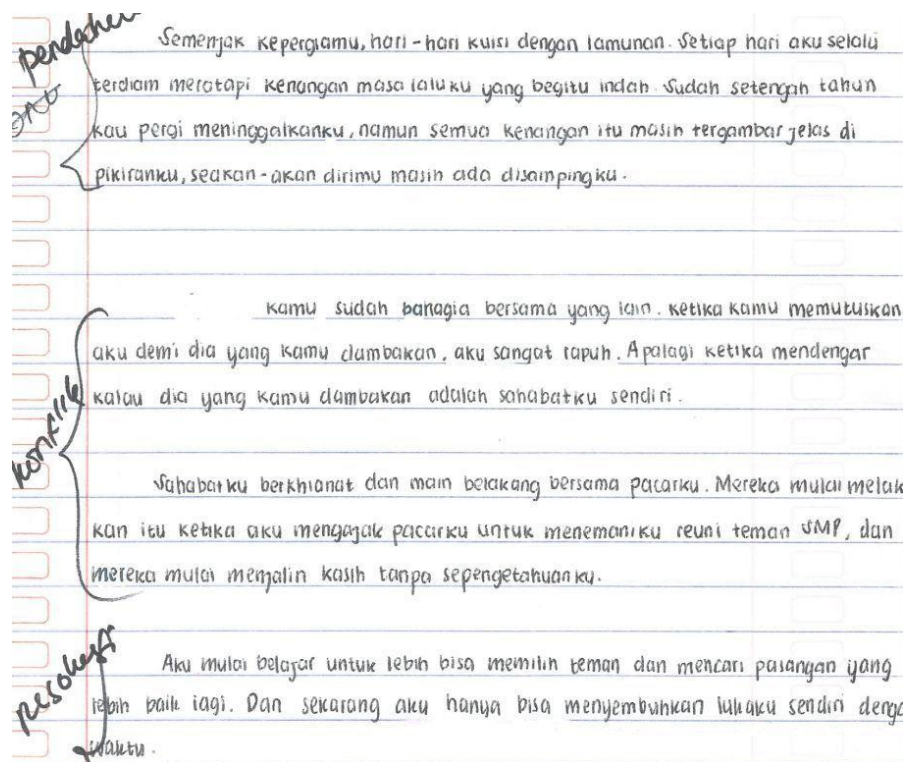 pendahuluan
Semenjak kepergiamu, hari-hari kuisi dengan lamunan. Setiap hari aku selalu
terdiam meratapi kenangan masa laluku yang begitu indah. Sudah setengah tahun
kau pergi meninggalkanku, namun semua kenangan itu masih tergambar jelas di
pikiranku, seakan-akan dirimu masih ada disampingku.
kamu sudah bahagia bersama yang lain. ketika kamu memutuskan
aku demi dia yang kamu dambakan, aku sangat rapuh. Apalagi ketika mendengar
kalau dia yang kamu dambakan adalah sahabatku sendiri.
konflik
Sahabatku berkhianat dan main belakang bersama pacarku. Mereka mulai melak
kan itu ketika aku mengajak pacarku untuk menemaniku reuni teman SMP, dan
mereka mulai menjalin kasih tanpa sepengetahuanku.
resolusi
Aku mulai belajar untuk lebih bisa memilih teman dan mencari pasangan yang
lebih baik lagi. Dan sekarang aku hanya bisa menyembuhkan lukaku sendiri denga
waktu.